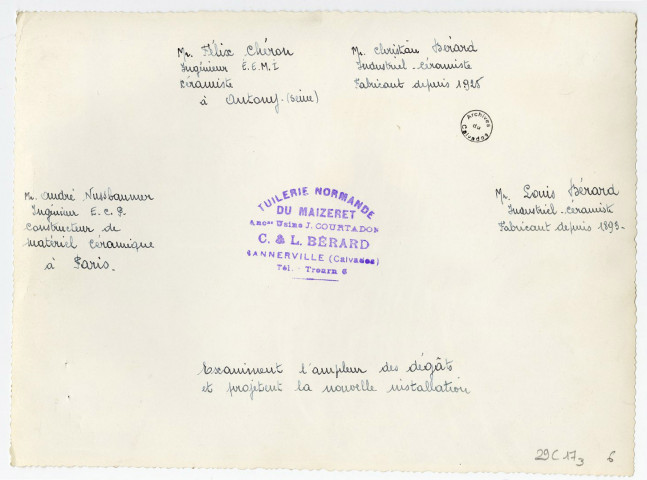 Mr. Félix Chéron
Ingénieur E.E.M.I
Céramiste
à Antony-(Seine)
Mr. Christian Bérard
Industriel-Céramiste
Fabricant depuis 1926
Archives
du
Calvados
Mr. André Nussbaumer
Ingénieur E.C.P.
Constructeur de
matériel céramique
à Paris.
TUILERIE NORMANDE
DU MAIZERET
Ancne Usine J. COURTADON
C. & L. BÉRARD
SANNERVILLE (Calvados)
Tél. Troarn 6
Mr. Louis Bérard
Industriel-Céramiste
Fabricant depuis 1893-
Examinent l'ampleur des dégâts
et projettent la nouvelle installation
29C173 6